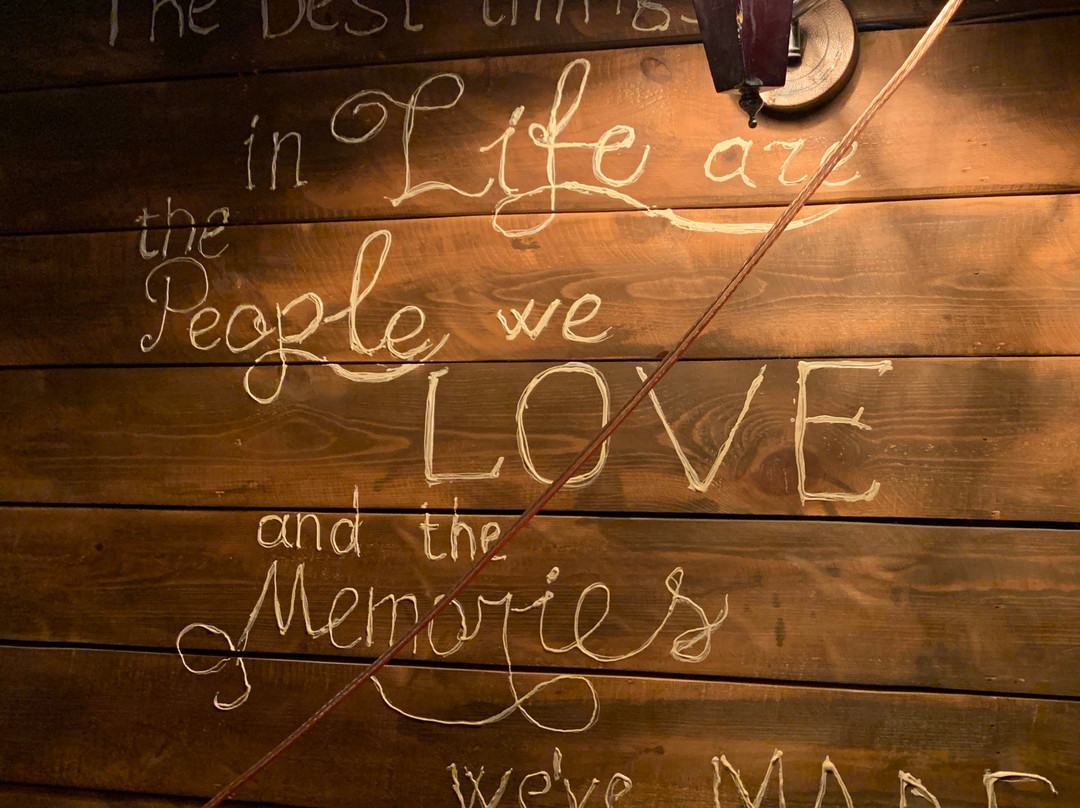 The Best things
in Life are
the
People we
LOVE
and the
Memories
we've MADE